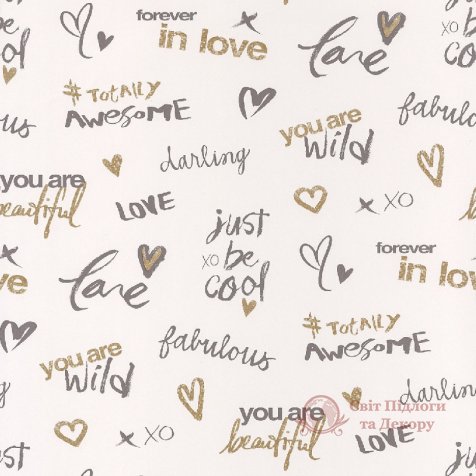 forever
in love
love
be
xo
cool
#TOTALLY
AWESOME
fabulous
you are
wild
darling
you are
beautiful
LOVE
x XO
just
xo be
cool
forever
in love
love
fabulous
#TOTALLY
AWESOME
you are
wild
darlin
you are
beautiful
LOVE
x XO
just
Світ Підлоги
та Декору